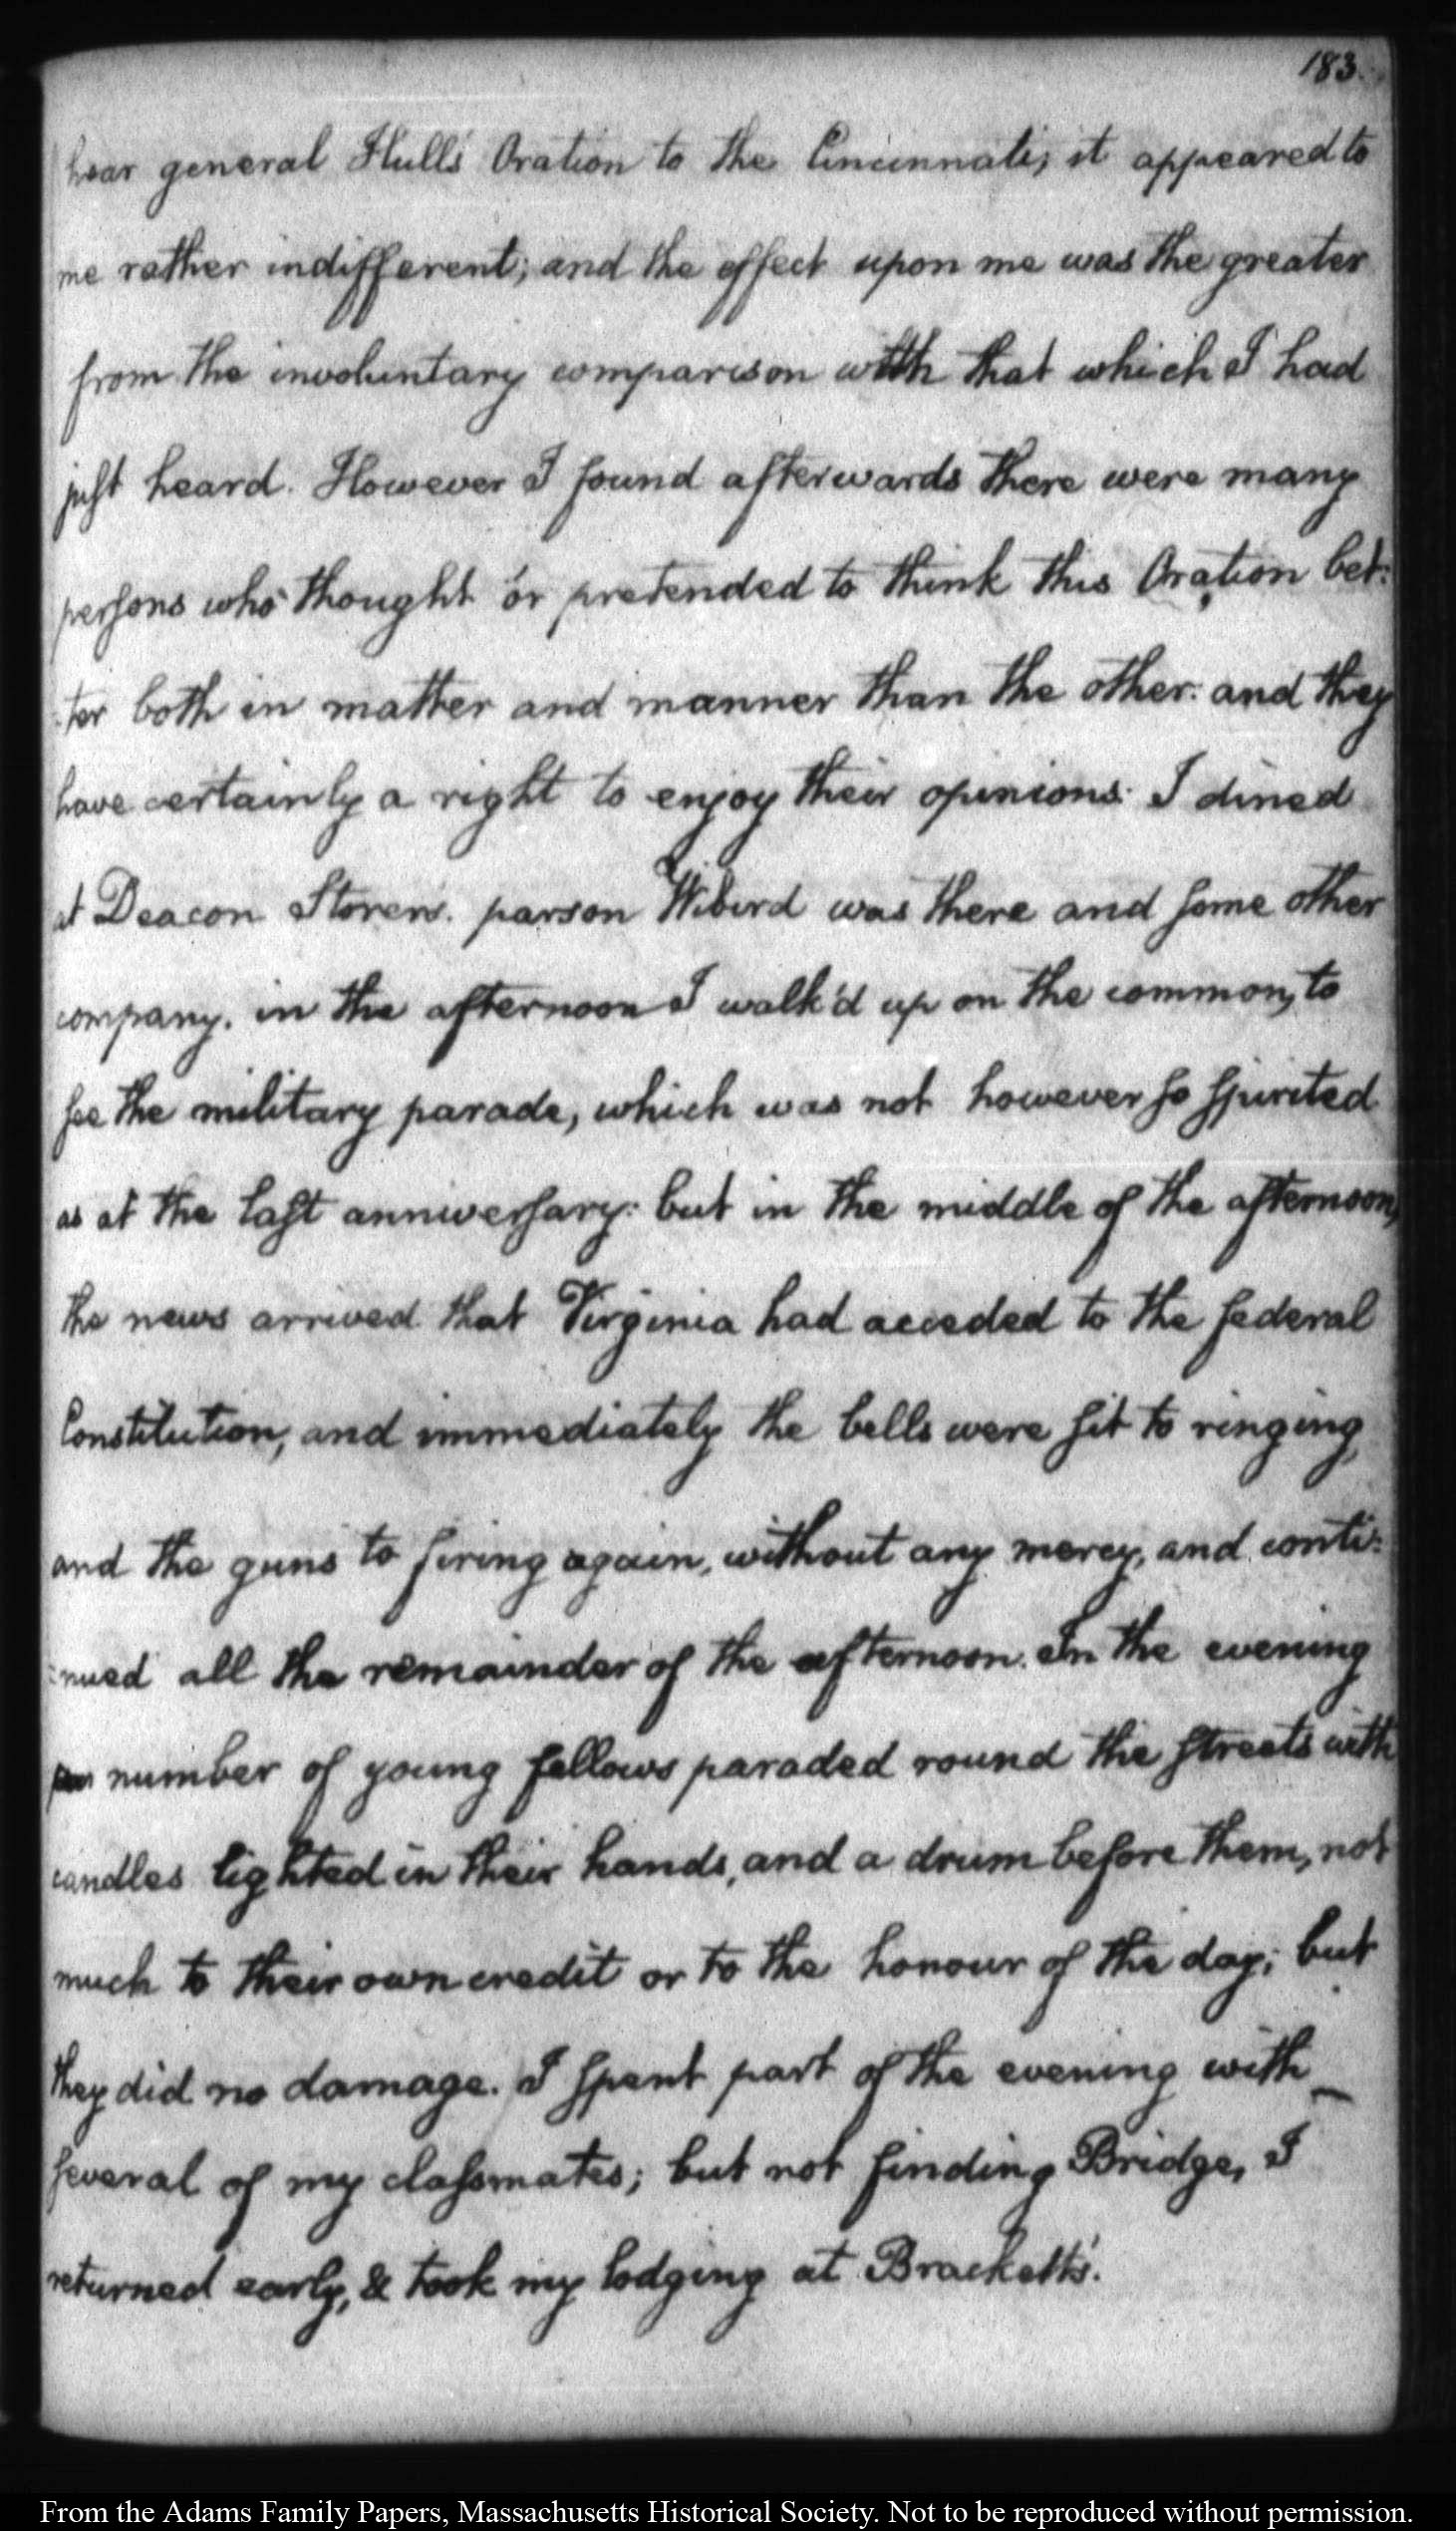 183.
hear general Hull's Oration to the Cincinnati; it appeared to
me rather indifferent; and the effect upon me was the greater
from the involuntary comparison with that which I had
just heard. However I found afterwards there were many
persons who thought or pretended to think this Oration bet:
:ter both in matter and manner than the other: and they
have certainly a right to enjoy their opinions. I dined
at Deacon Storers. parson Wibird was there and some other
company. in the afternoon I walk'd up on the common, to
see the military parade, which was not however so spirited
as at the last anniversary: but in the middle of the afternoon,
the news arrived that Virginia had acceded to the federal
Constitution, and immediately the bells were sit to ringing,
and the guns to firing again, without any mercy, and conti:
:nued all the remainder of the afternoon. In the evening
number of young fellows paraded round the streets with
candles lighted in their hands, and a drum before them, not
much to their own credit or to the honour of the day; but
they did no damage. I spent part of the evening with
several of my classmates; but not finding Bridge, I
returned early, & took my lodging at Brackett's.
From the Adams Family Papers, Massachusetts Historical Society. Not to be reproduced without permission.